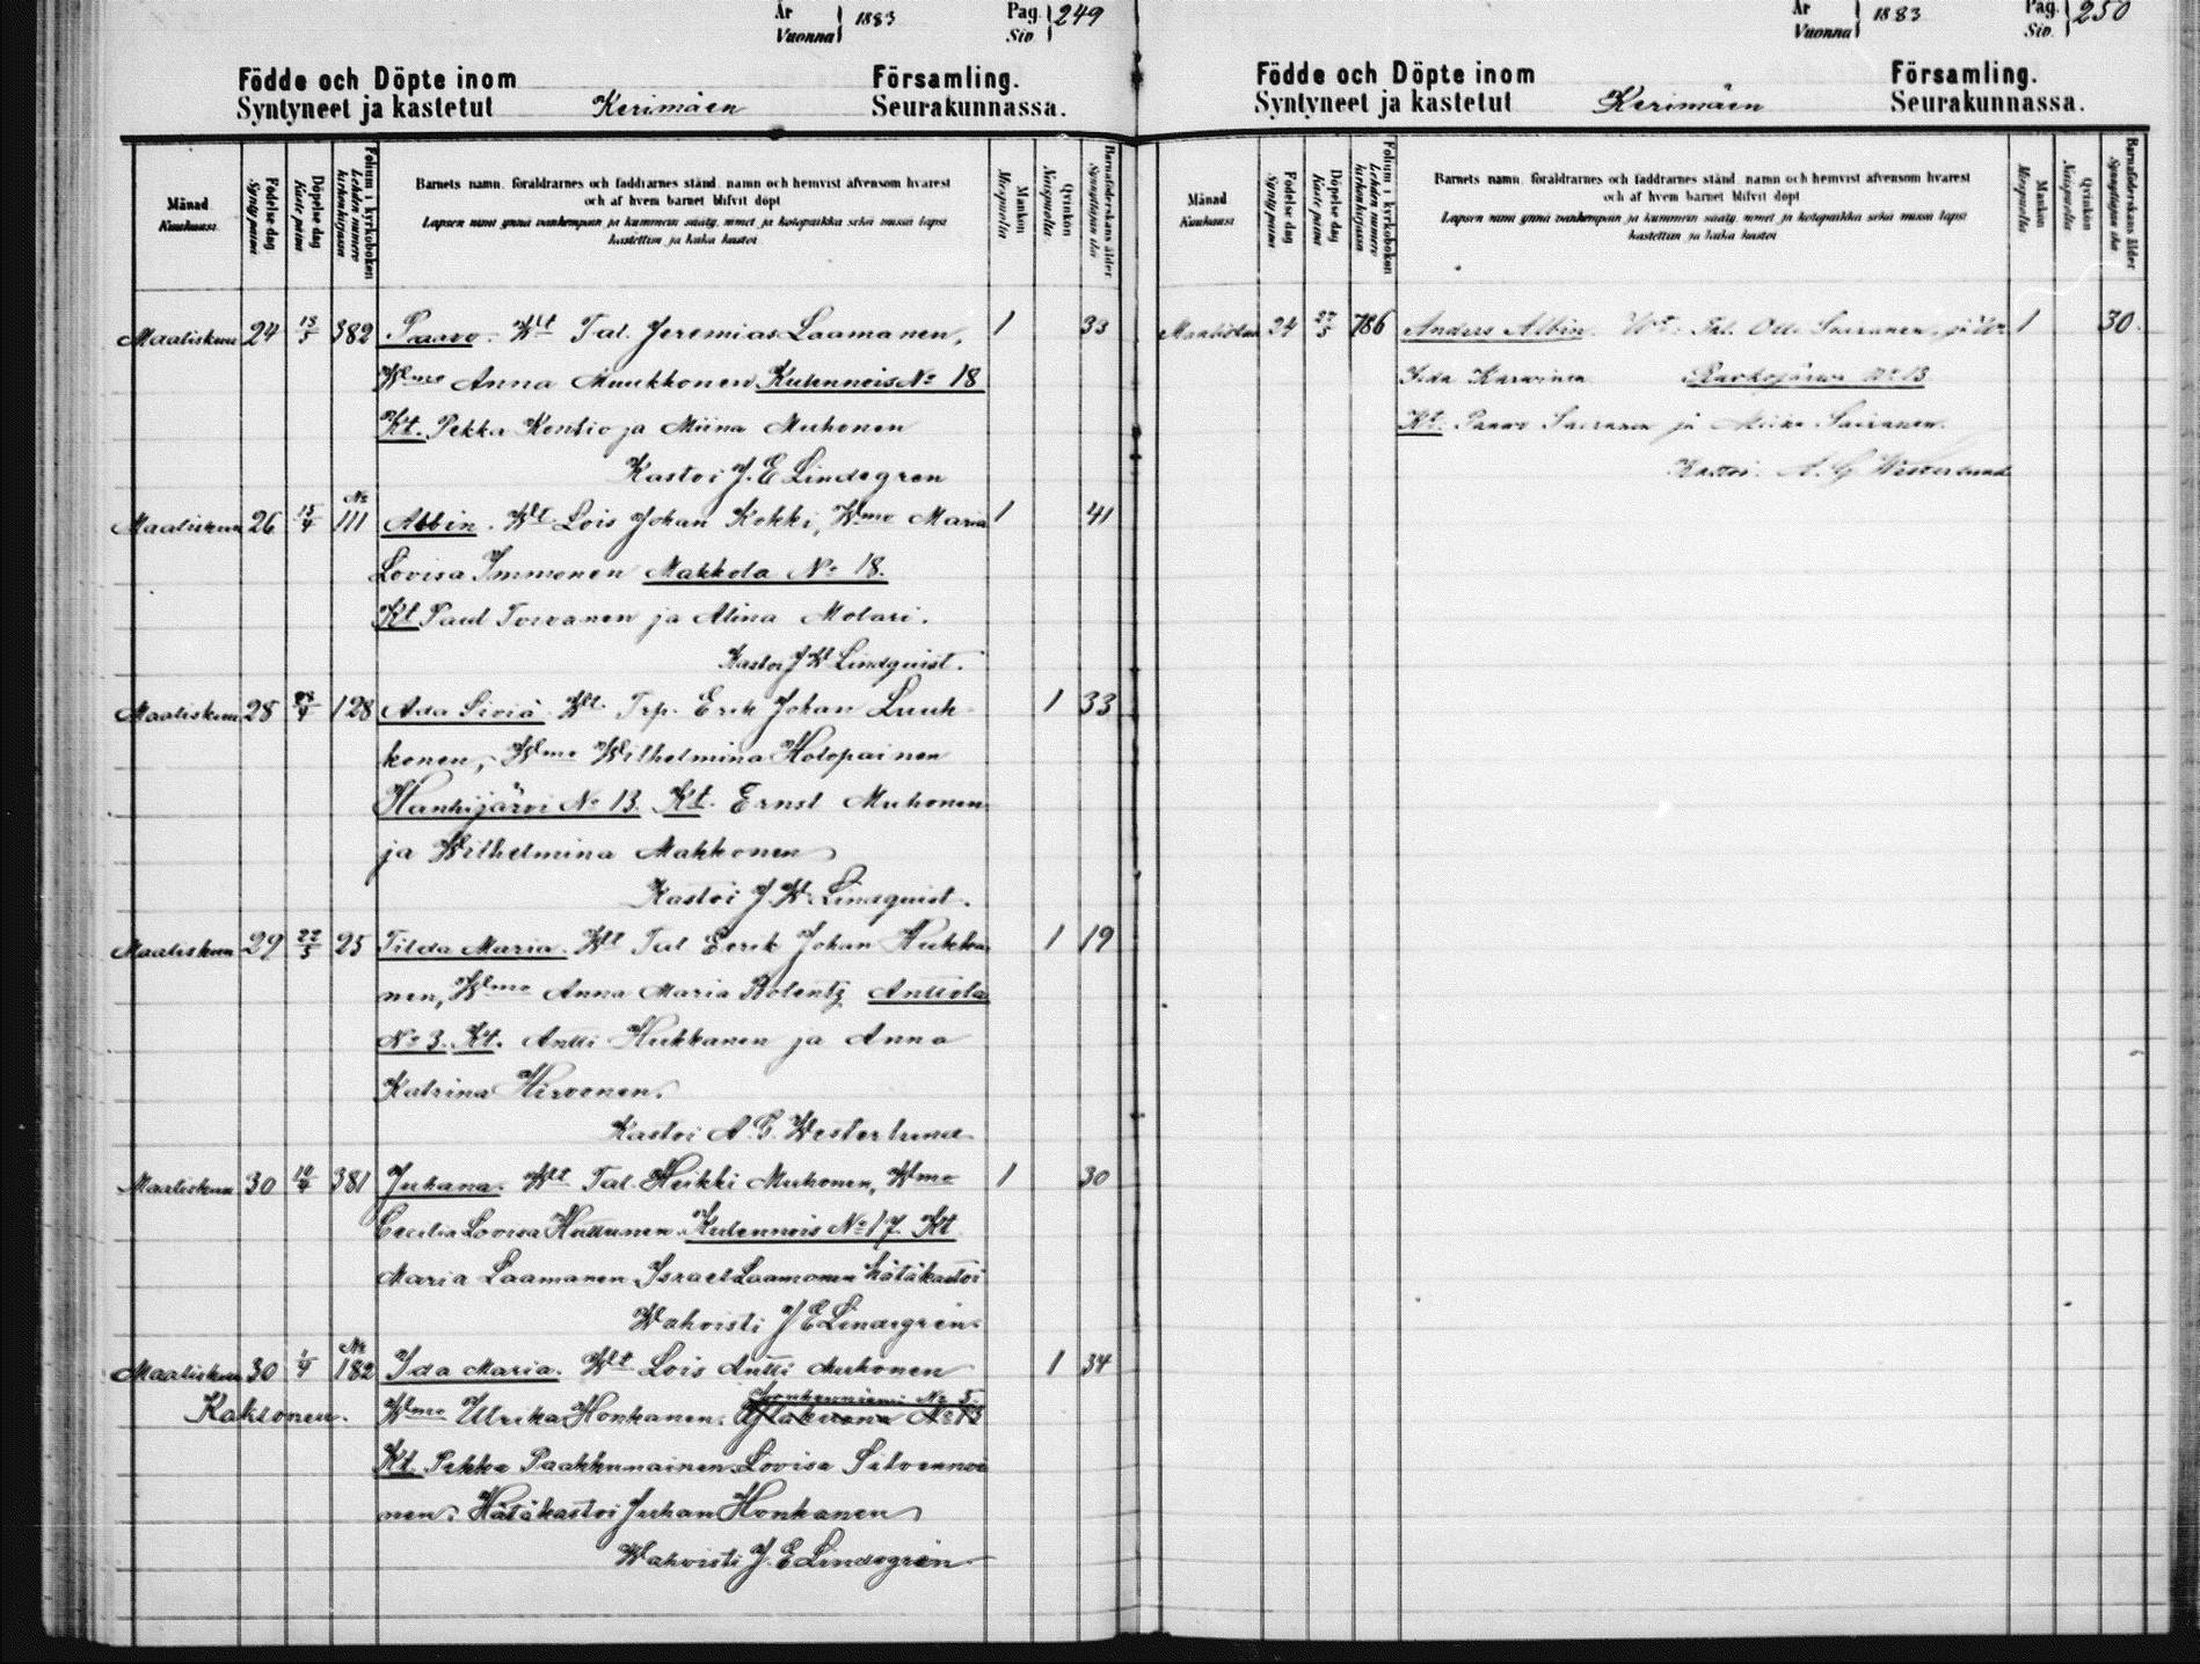 År
Vuonna } 1883
Pag.
Siv. } 249
Födde och Döpte inom Församling.
Syntyneet ja kastetut Kerimäen Seurakunnassa.
Månad
Kuukausi.
Födelse dag
Synty päivä
Döpelse dag
Kaste päivä
Folium i kyrkoboken
Lehden numero
kirkonkirjassa
Barnets namn, föräldrarnes och faddrarnes stånd, namn och hemvist äfvensom hvarest
och af hvem barnet blifvit döpt
Lapsen nimi ynnä vanhempain ja kummein sääty, nimet ja kotopaikka sekä missä lapsi
kastettiin ja kuka kastoi
Mankön
Miespuolia
Qvinkön
Naispuolia
Barnaföderskans ålder
Synnyttäjän ikä
Maaliskuu 24 13/5 382 Paavo. Wlt Tal. Jeremias Laamanen, 1 33
Wmo Anna Muukkonen Kulennois No 18
Kt. Pekka Kontio ja Miina Muhonen
Kastoi J. E Lindegren
Maaliskuu 26 15/4 No 111 Albin. Wlt Lois Johan Kokki, Wmo Maria 1 41
Lovisa Immonen Makkola No 18.
Kt Paul Torvanen ja Alina Molari.
Kastoi J W Lindquist.
Maaliskuu 28 /4 128 Ada Siviä Wlt. Trp. Erik Johan Luuk- 1 33
konen, Wmo Wilhelmina Holopainen
Hanhijärvi No 13. Kt. Ernst Muhonen
ja Wilhelmina Makkonen
Kastoi J. W. Lindquist.
Maaliskuu 29 22/5 25 Tilda Maria. Wlt Tal Eerik Johan Hukka 1 19
nen, Wmo Anna Maria Bolentz Anttola
No 3. Kt. Antti Hukkanen ja Anna
Katrina Hirvonen.
Kastoi A. G. Westerlund
Maaliskuu 30 10/4 381 Juhana. Wlt Tal. Heikki Muhonen, Wmo 1 30
Cecilia Lovisa Huttunen. Kulennois No 17. Kt
Maria Laamanen, Israel Laamanen hätäkastoi
Wahvisti J E Lindegrén.
Maaliskuu 30 1/4 No 182 Ida Maria. Wlt Lois Antti Muhonen 1 34
Kaksonen. Wmo Ulrika Honkanen. No 5.
Kt. Pekka Paakkunainen Lovisa Silvenno
nen. Hätäkastoi Juhan Honkanen
Wahvisti J. E Lindegrén
År
Vuonna } 1883
Pag.
Siv. } 250
Födde och Döpte inom Församling.
Syntyneet ja kastetut Kerimäen Seurakunnassa.
Månad
Kuukausi.
Födelse dag
Synty päivä
Döpelse dag
Kaste päivä
Folium i kyrkoboken
Lehden numero
kirkonkirjassa
Barnets namn, föräldrarnes och faddrarnes stånd, namn och hemvist äfvensom hvarest
och af hvem barnet blifvit döpt
Lapsen nimi ynnä vanhempain ja kummein sääty, nimet ja kotopaikka sekä missä lapsi
kastettiin ja kuka kastoi
Mankön
Miespuolia
Qvinkön
Naispuolia
Barnaföderskans ålder
Synnyttäjän ikä
Maaliskuu 24 27/5 786 Anders Albin. Wt. Tal. Otto Sairanen, ja Wr 1 30.
Ida Karvinen No 13
Kt. Paavo Sairanen ja Miina Sairanen.
Kastoi. A. G Westerlund